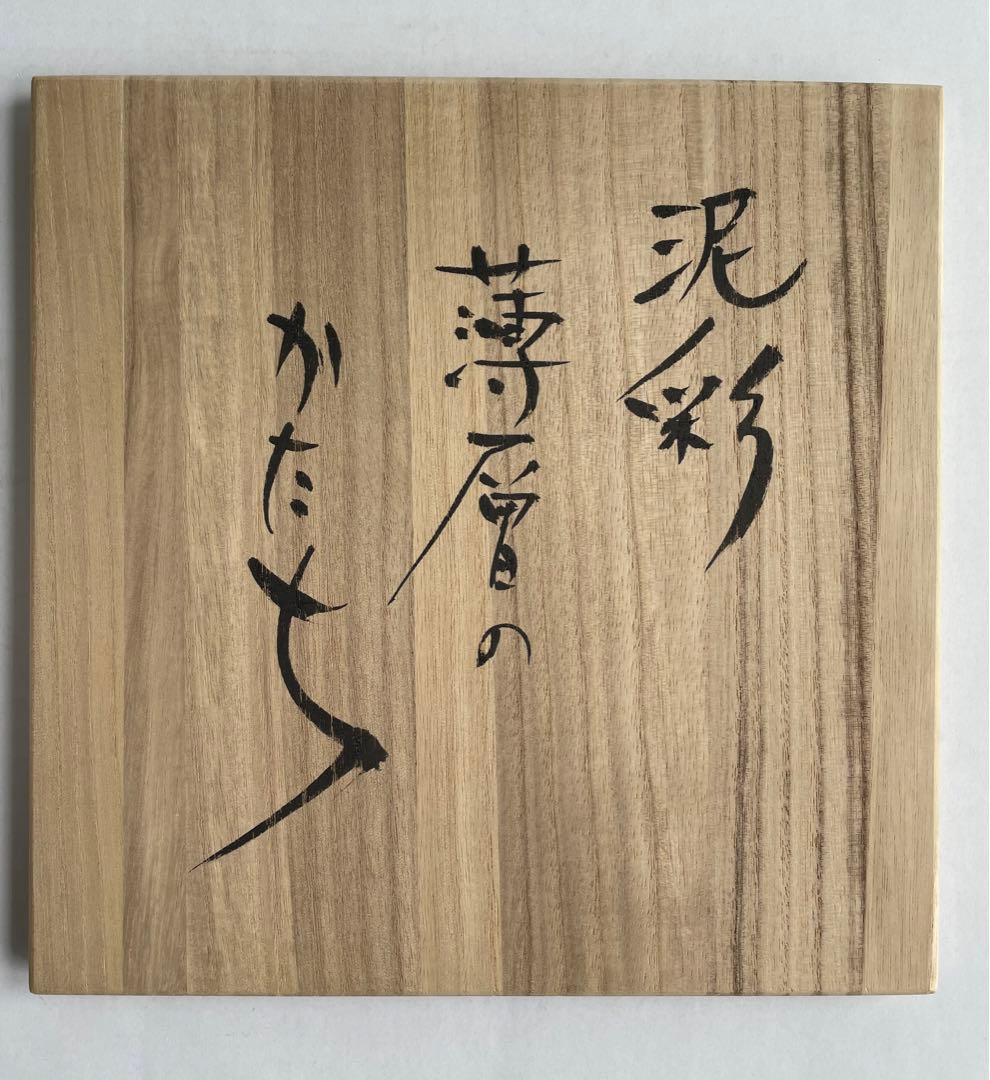 泥彩
薄層の
かたち